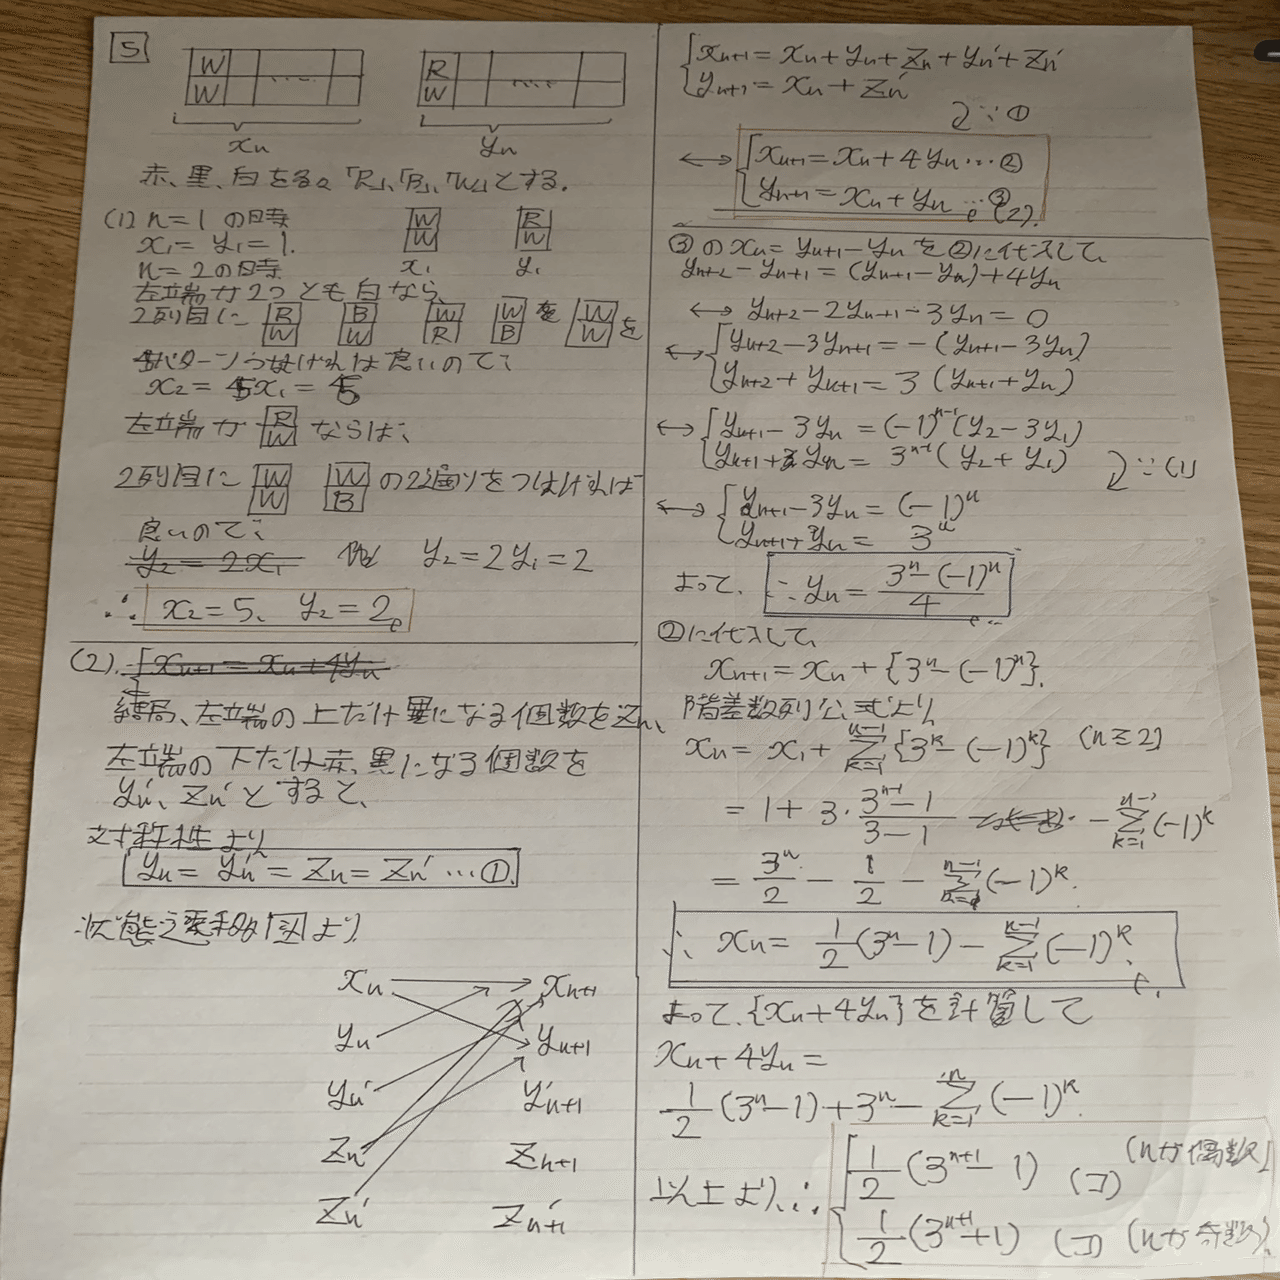 5
W W …
R W …
xn
yn
赤、黒、白を各々「R」、「B」、「W」とする。
(1) n=1の時
x₁=y₁=1.
W W
x₁
R W
y₁
n=2の時
左端が2つとも白なら、
2列目に R W B W W R W B を W W を
5パターンつなげれば良いので、
x₂=5x₁=5
左端が R W ならば、
2列目に W W W B の2通りをつなげれば
良いので、
y₂=2x₁ y₂=2y₁=2
∴ x₂=5、y₂=2
(2). xn+1=xn+4yn
結局、左端の上だけ黒になる個数をzn、
左端の下だけ赤、黒になる個数を
yn′、zn′とすると、
対称性より
yn=yn′=zn=zn′…①
状態遷移図より
xn xn+1
yn yn+1
yn′ y′n+1
zn zn+1
zn′ z′n+1
xn+1=xn+yn+zn+yn′+zn′
yn+1=xn+zn′
∵①
↔ xn+1=xn+4yn…②
yn+1=xn+yn…③ (2).
③のxn=yn+1-ynを②に代入して、
yn+2-yn+1=(yn+1-yn)+4yn
↔ yn+2-2yn+1-3yn=0
↔ yn+2-3yn+1=-(yn+1-3yn)
yn+2+yn+1=3(yn+1+yn)
↔ yn+1-3yn=(-1)ⁿ⁻¹(y₂-3y₁)
yn+1+yn=3ⁿ⁻¹(y₂+y₁)
∵(1)
↔ yn+1-3yn=(-1)ⁿ
yn+1+yn=3ⁿ
よって、∴yn=(3ⁿ-(-1)ⁿ)/4
②に代入して、
xn+1=xn+{3ⁿ-(-1)ⁿ}.
階差数列公式より
xn=x₁+Σ[k=1,n-1]{3ᵏ-(-1)ᵏ} (n≧2)
=1+3・(3ⁿ⁻¹-1)/(3-1) -Σ[k=1,n-1](-1)ᵏ
=3ⁿ/2-1/2-Σ[k=1,n-1](-1)ᵏ.
∴ xn=1/2(3ⁿ-1)-Σ[k=1,n-1](-1)ᵏ.
よって、{xn+4yn}を計算して
xn+4yn=
1/2(3ⁿ-1)+3ⁿ-Σ[k=1,n](-1)ᵏ.
以上より、∴ 1/2(3ⁿ⁺¹-1) (コ) (nが偶数)
1/2(3ⁿ⁺¹+1) (コ) (nが奇数).